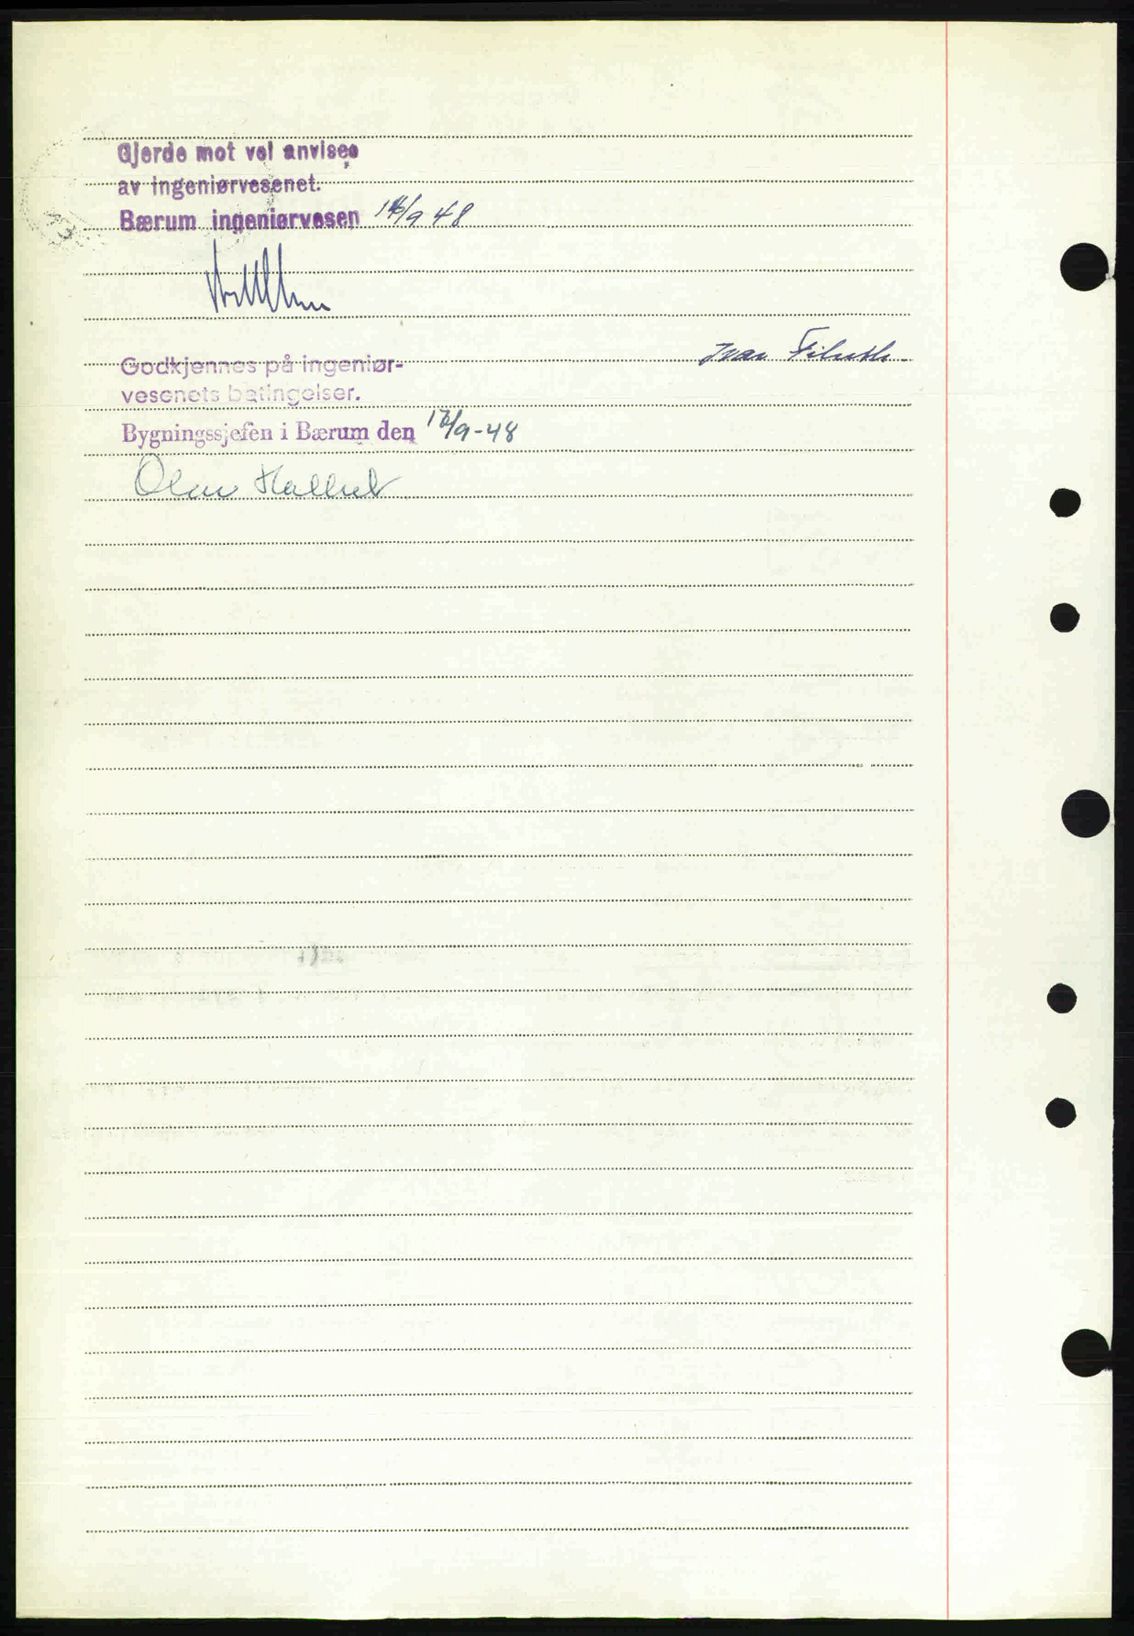 Gjerde mot vei anvises
av ingeniørvesenet.
Bærum ingeniørvesen 16/9 48
Godkjennes på ingeniør-
vesenets betingelser.
Bygningssjefen i Bærum den 17/9-48
Olav
Ivar